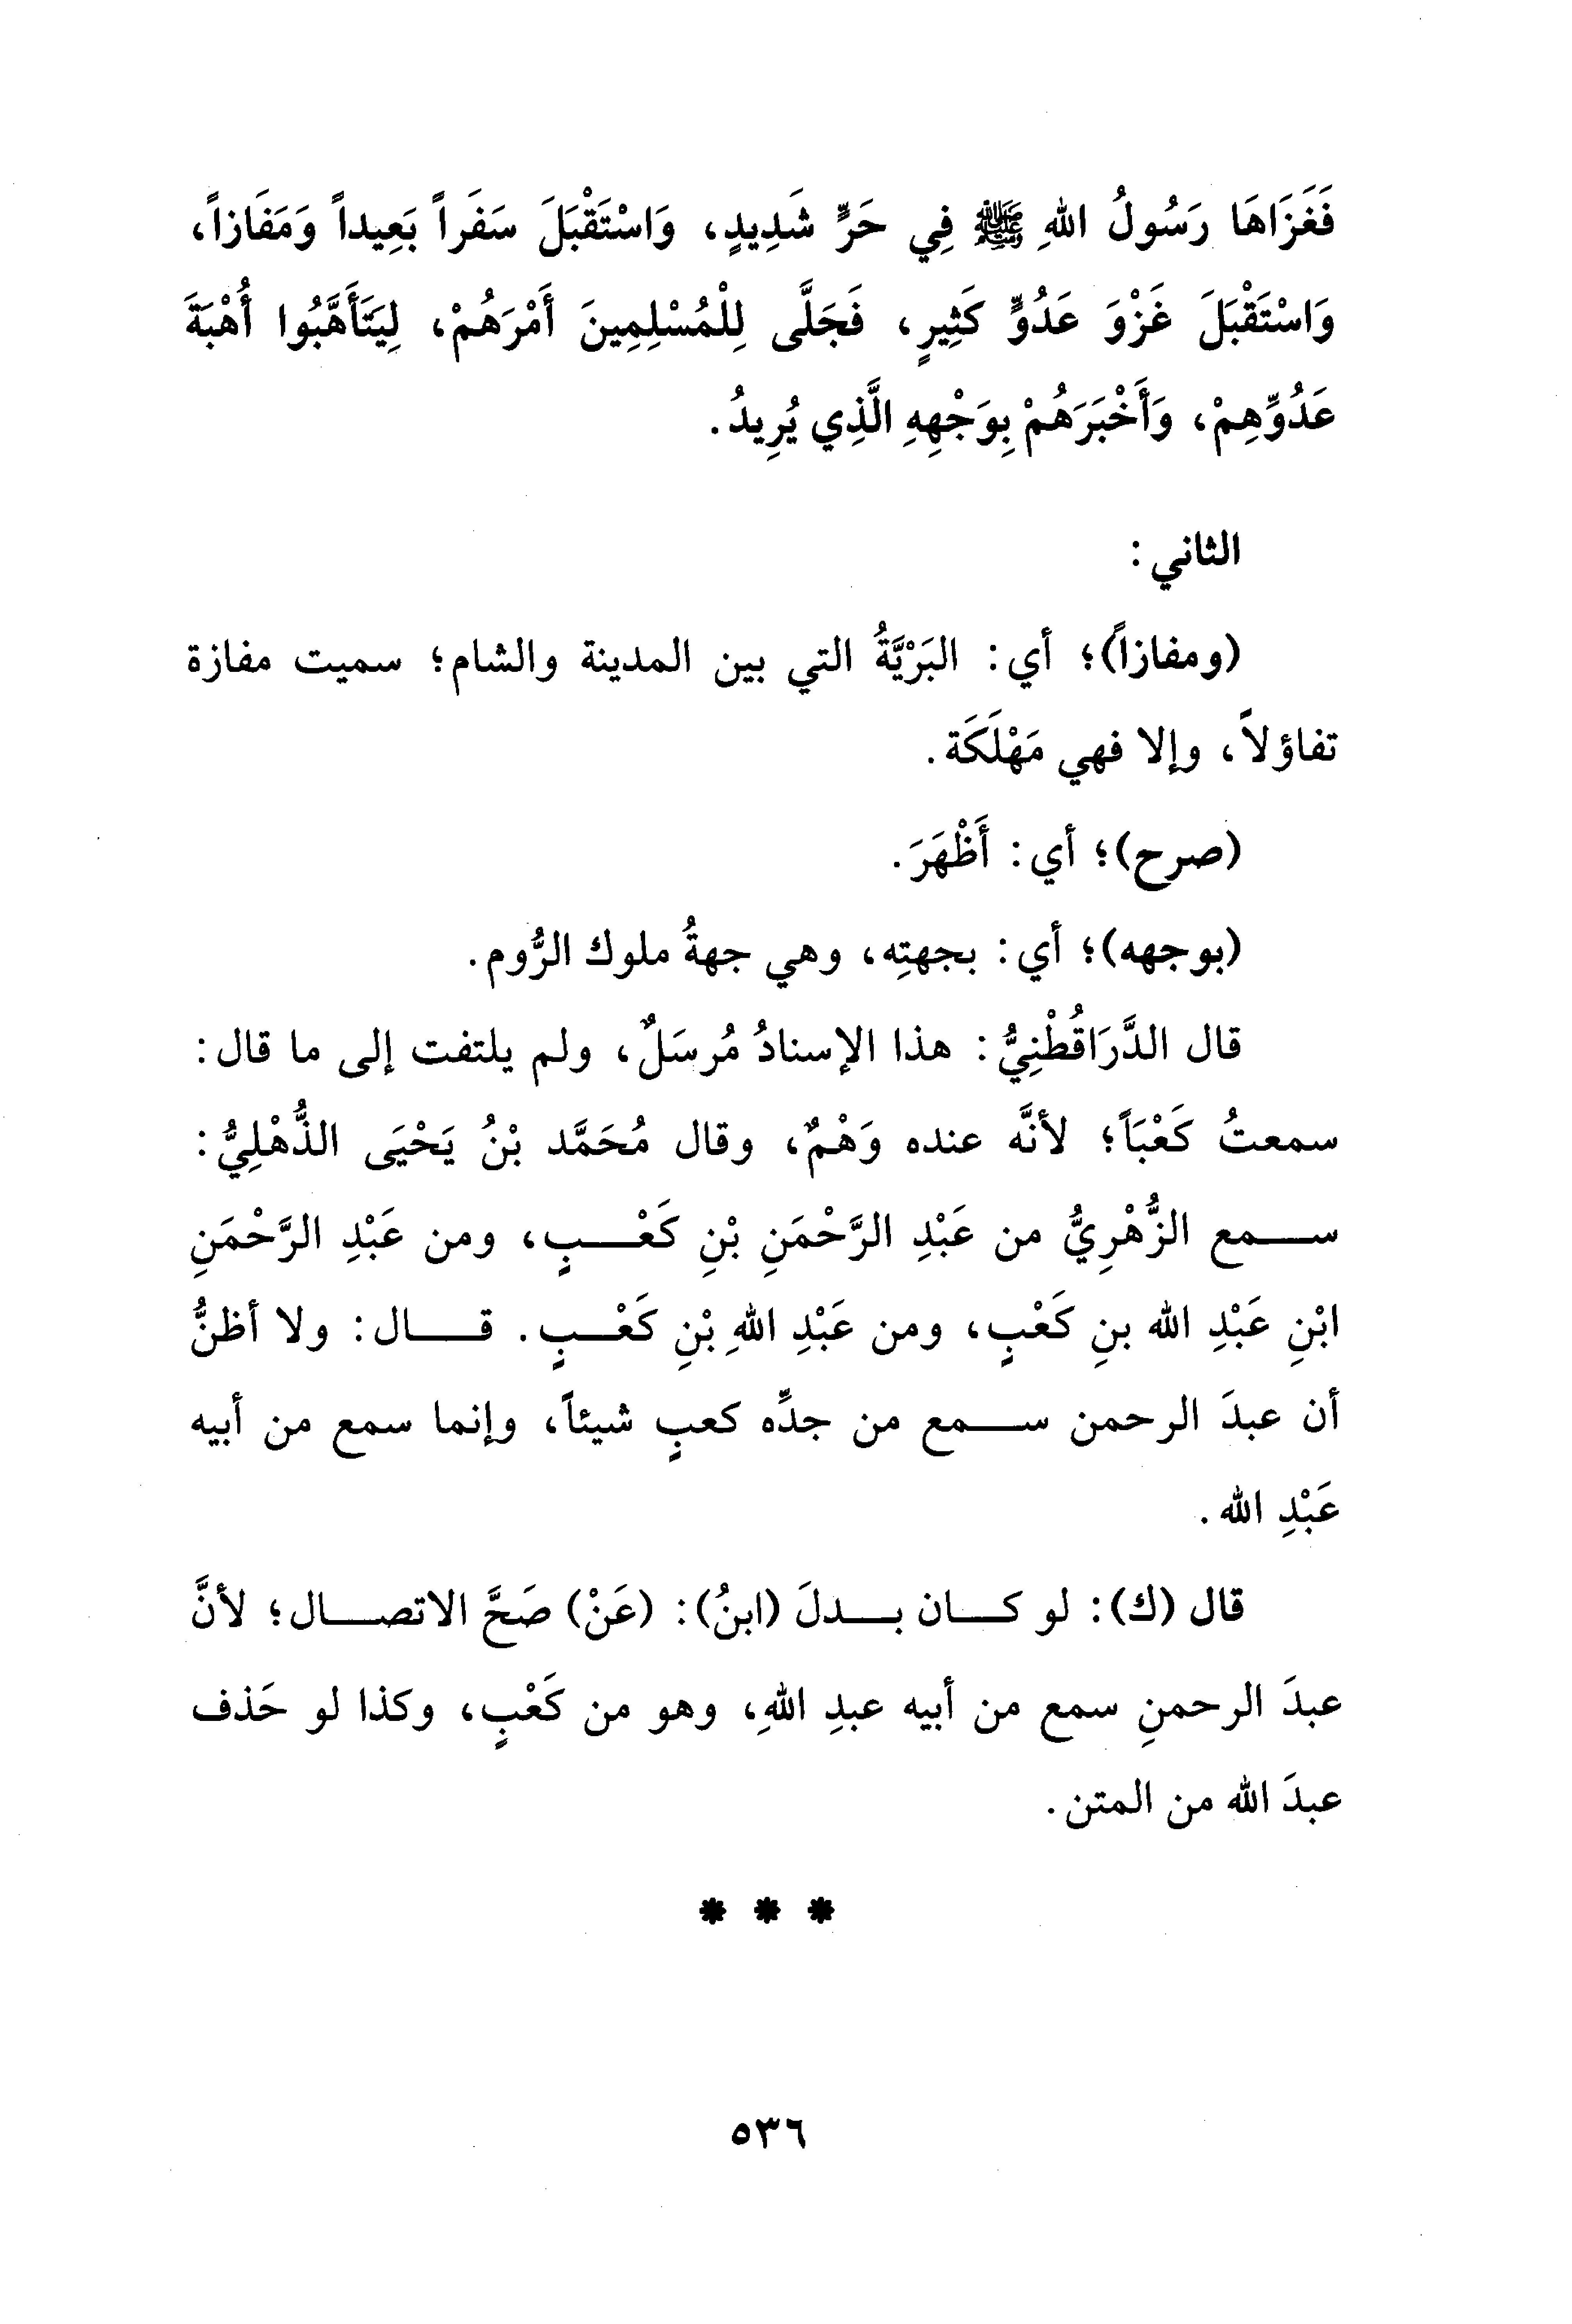 فَغَزَاهَا رَسُولُ اللهِ ﷺ فِي حَرٍّ شَدِيدٍ، وَاسْتَقْبَلَ سَفَراً بَعِيداً وَمَفَازاً،
وَاسْتَقْبَلَ غَزْوَ عَدُوٍّ كَثِيرٍ، فَجَلَّى لِلْمُسْلِمِينَ أَمْرَهُمْ، لِيَتَأَهَّبُوا أُهْبَةَ
عَدُوِّهِمْ، وَأَخْبَرَهُمْ بِوَجْهِهِ الَّذِي يُرِيدُ.
الثاني:
(ومفازاً)؛ أي: البَرْيَّةُ التي بين المدينة والشام؛ سميت مفازة
تفاؤلاً، وإلا فهي مَهْلَكَة.
(صرح)؛ أي: أَظْهَرَ.
(بوجهه)؛ أي: بجهتِه، وهي جهةُ ملوك الرُّوم.
قال الدَّرَاقُطْنِيُّ: هذا الإسنادُ مُرسَلٌ، ولم يلتفت إلى ما قال:
سمعتُ كَعْبَاً؛ لأنَّه عنده وَهْمٌ، وقال مُحَمَّد بْنُ يَحْيَى الذُّهْلِيُّ:
سمع الزُّهْرِيُّ من عَبْدِ الرَّحْمَنِ بْنِ كَعْبٍ، ومن عَبْدِ الرَّحْمَنِ
ابْنِ عَبْدِ الله بنِ كَعْبٍ، ومن عَبْدِ اللهِ بْنِ كَعْبٍ. قال: ولا أظنُّ
أن عبدَ الرحمن سمع من جدِّه كعبٍ شيئاً، وإنما سمع من أبيه
عَبْدِ الله.
قال (ك): لو كان بدلَ (ابنُ): (عَنْ) صَحَّ الاتصال؛ لأنَّ
عبدَ الرحمنِ سمع من أبيه عبدِ اللهِ، وهو من كَعْبٍ، وكذا لو حَذف
عبدَ الله من المتن.
* * *
٥٣٦